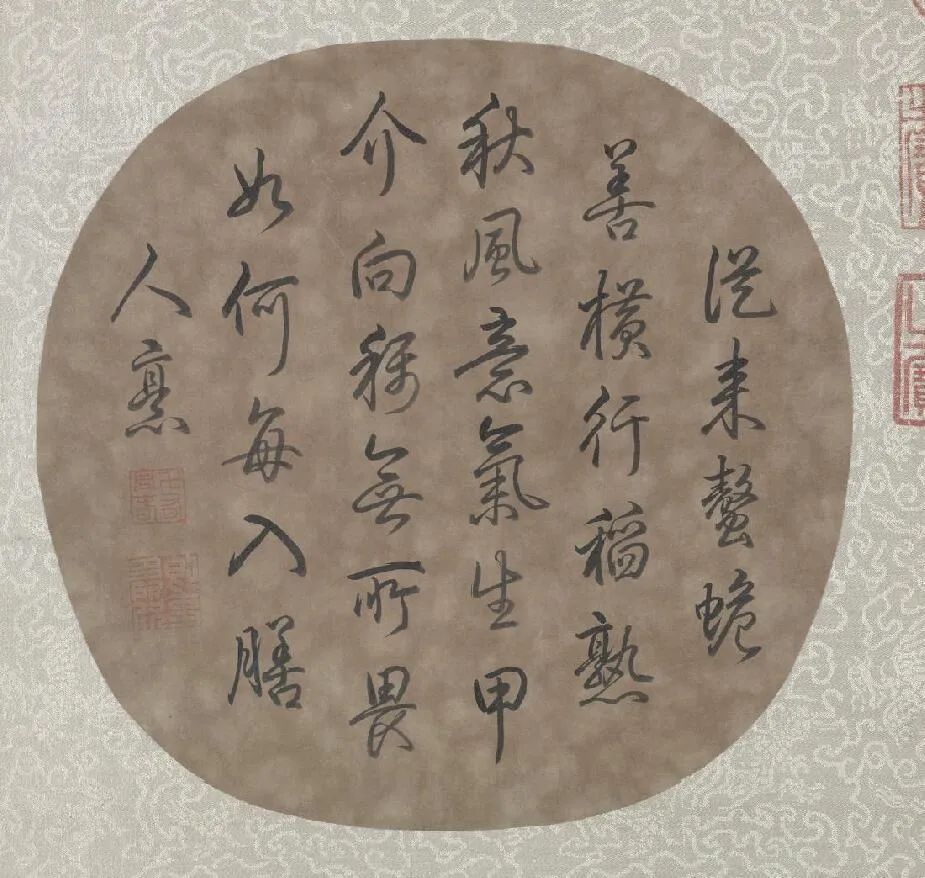 從来螯蟾
善横行稻熟
秋風意氣生甲
介向稱無所畏
如何每入膳
人烹